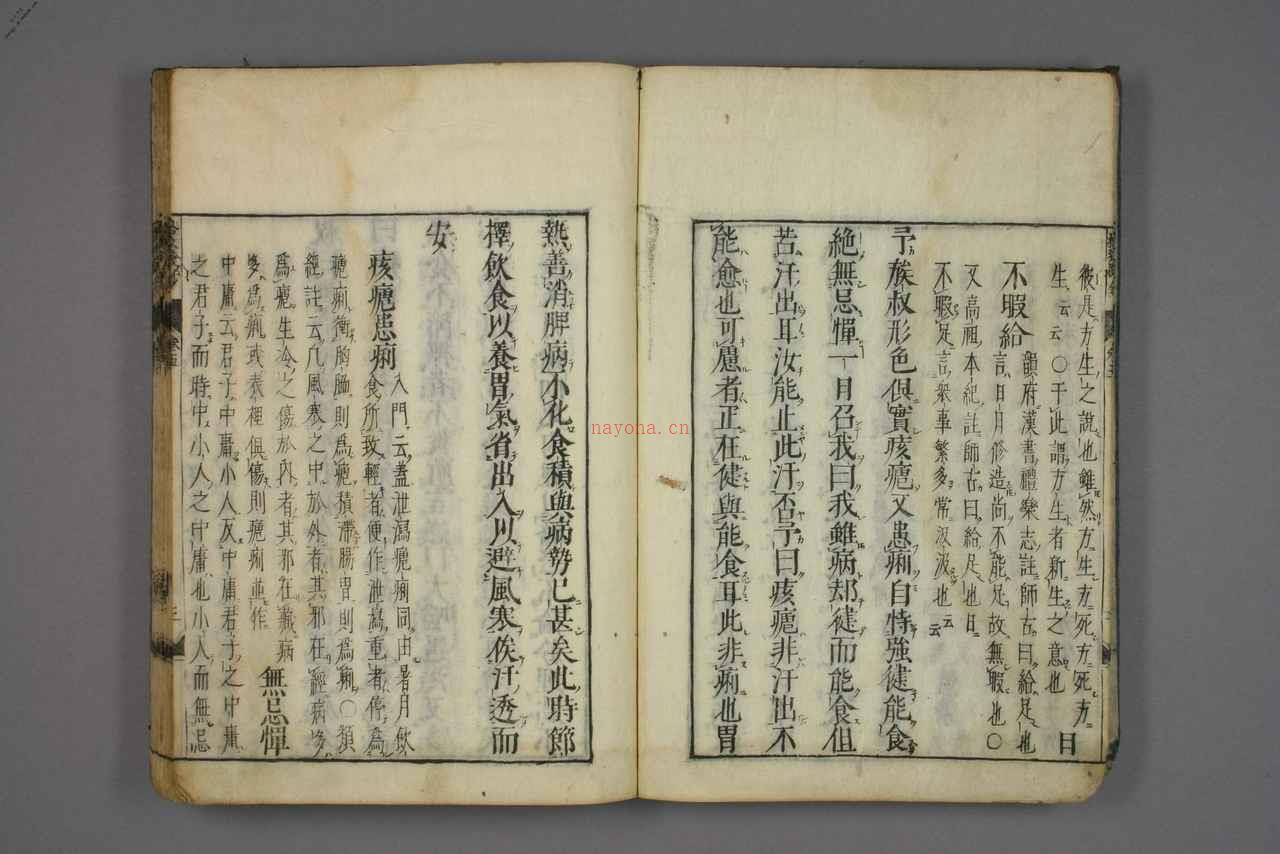 彼是方生之說也雖然方生方死方死方
生云云○于此謂方生者新生之意也 日
不暇給 韻府漢書禮樂志註師古曰給足也
言日月修造尚不能足故無暇也○
又高祖本紀註師古曰給足也日
不暇足言衆事繁多常汲汲也云云
予族叔形色俱實痎瘧又患痢自恃強健能食
絶無忌憚一日召我曰我雖病却健而能食但
苦汗出耳汝能止此汗否予曰痎瘧非汗出不
能愈也可慮者正在健與能食耳此非痢也胃
熱善消脾病不化食積與病勢已甚矣此時節
擇飲食以養胃氣省出入以避風寒俟汗透而
安
痎瘧患痢 入門云盖泄瀉瘧痢同由暑月飲
食所致輕者便作泄瀉重者停爲
瘧痢衝胸膈則爲瘧積滯腸胃則爲痢○類
經註云凡風寒之中於外者其邪在經病多
爲瘧生冷之傷於內者其邪在藏病
多爲痢或表裡俱傷則瘧痢並作 無忌憚
中庸云君子中庸小人反中庸君子之中庸
之君子而時中小人之中庸也小人而無忌
nayona.cn